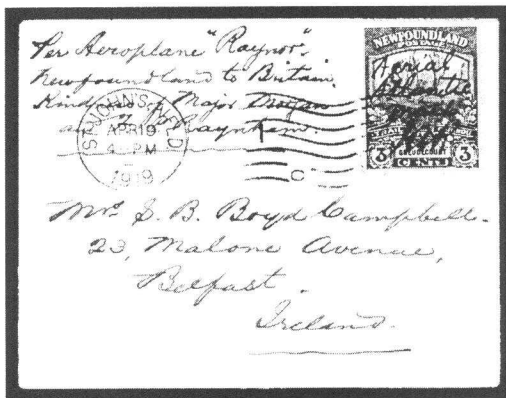 Per Aeroplane "Raynor".
Newfoundland to Britain.
Kindness of Major Morgan
and
ST. JOHN'S, NF'L'D
APR 19
4 PM
1919
NEWFOUNDLAND
Aerial
Atlantic
Mail
GUEUDECOURT
3 CENTS 3
Mrs J. B. Boyd Campbell.
23, Malone Avenue,
Belfast.
Ireland.